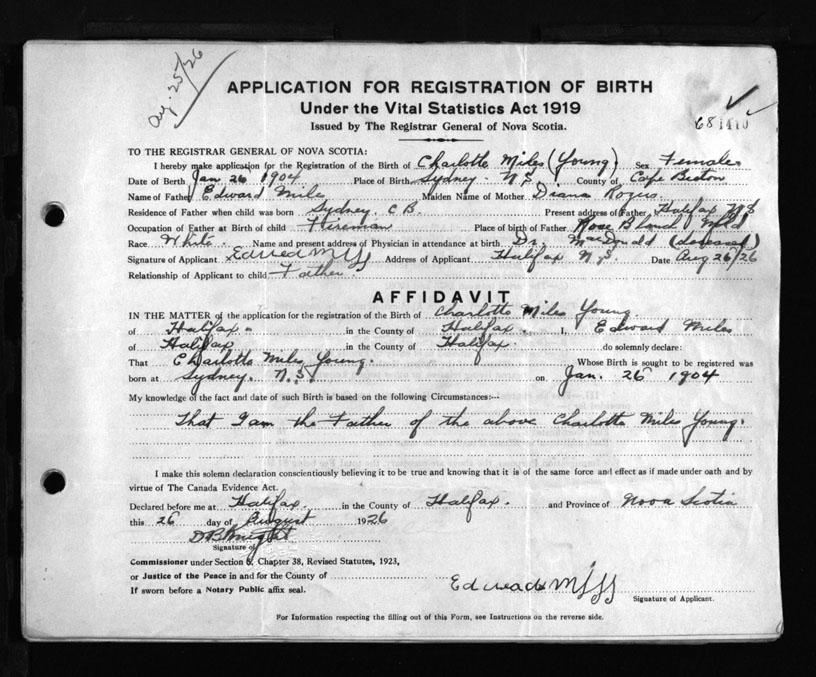 Aug. 25/26
APPLICATION FOR REGISTRATION OF BIRTH
Under the Vital Statistics Act 1919
Issued by The Registrar General of Nova Scotia.
68 1410
TO THE REGISTRAR GENERAL OF NOVA SCOTIA:
I hereby make application for the Registration of the Birth of Charlotte Miles (Young) Sex Female
Date of Birth Jan 26 1904 Place of Birth Sydney. N.S. County of Cape Breton
Name of Father Edward Mile Maiden Name of Mother Diana
Residence of Father when child was born Sydney. C B. Present address of Father Halifax N S
Occupation of Father at Birth of child Fireman Place of birth of Father Rose Bland Nfld
Race White. Name and present address of Physician in attendance at birth Dr. MacDonald (deceased)
Signature of Applicant Address of Applicant Halifax N.S. Date Aug 26/26
Relationship of Applicant to child Father.
AFFIDAVIT
IN THE MATTER of the application for the registration of the Birth of Charlotte Miles Young.
of Halifax in the County of Halifax. I, Edward Miles
of Halifax in the County of Halifax. do solemnly declare:
That Charlotte Miles Young. Whose Birth is sought to be registered was
born at Sydney. N.S. on Jan. 26 1904
My knowledge of the fact and date of such Birth is based on the following Circumstances:--
That I am the Father of the above Charlotte Miles Young.
I make this solemn declaration conscientiously believing it to be true and knowing that it is of the same force and effect as if made under oath and by
virtue of The Canada Evidence Act.
Declared before me at Halifax. in the County of Halifax. and Province of Nova Scotia
this 26 day of August 1926
D B Knight
Signature of
Commissioner under Section 6, Chapter 38, Revised Statutes, 1923,
or Justice of the Peace in and for the County of
If sworn before a Notary Public affix seal.
Signature of Applicant.
For Information respecting the filling out of this Form, see Instructions on the reverse side.